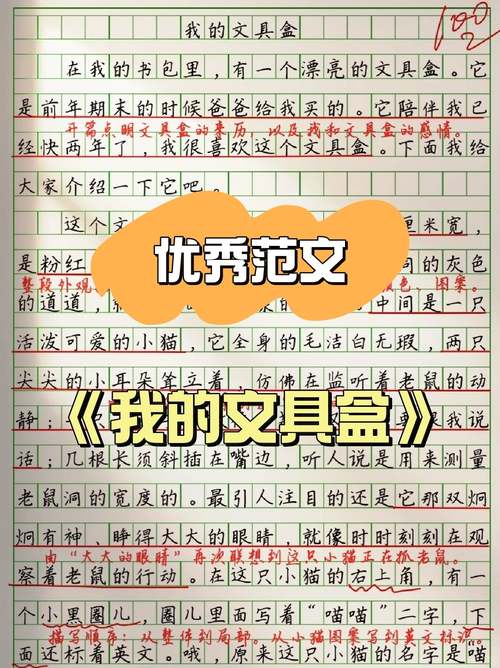 100
2
我的文具盒
在我的书包里，有一个漂亮的文具盒。它
是前年期末的时候爸爸给我买的。它陪伴我已
开篇点明文具盒的来历，以及我和文具盒的感情。
经快两年了，我很喜欢这个文具盒。下面我给
大家介绍一下它吧。
这个文
厘米宽，
优秀范文
是粉红
间的灰色
整段外观
色，图案。
的道道，
中间是一只
活泼可爱的小猫，它全身的毛洁白无瑕，两只
尖尖的小耳朵耸立着，仿佛在监听着老鼠的动
《我的文具盒》
静；
是我说
话；几根长须斜插在嘴边，听人说是用来测量
老鼠洞的宽度的。最引人注目的还是它那双炯
炯有神、睁得大大的眼睛，就像时时刻刻在观
由“大大的眼睛”再次联想到这只小猫正在抓老鼠。
察着老鼠的行动。在这只小猫的右上角，有一
个小黑圈儿，圈儿里面写着“喵喵”二字，下
描写顺序：从整体到局部。从小猫图案写到英文标识。
面还标着英文。哦，原来这只小猫的名字是喵